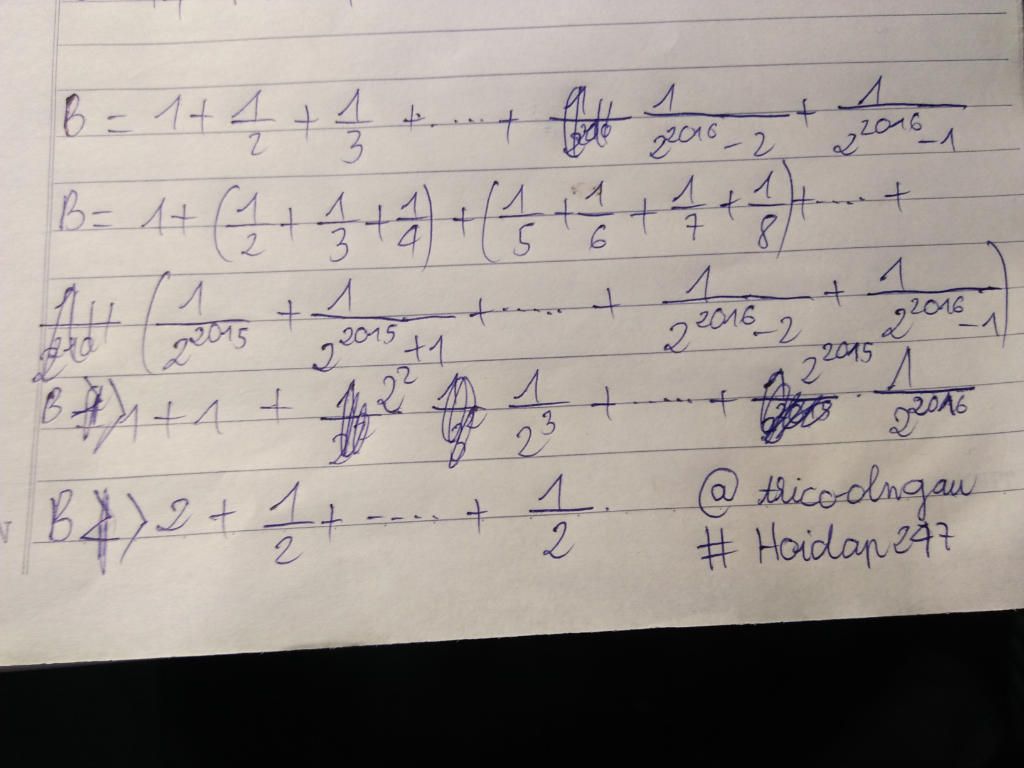 B = 1 + 1/2 + 1/3 + ..... + 1/(2^2016 - 2) + 1/(2^2016 - 1)
B = 1 + (1/2 + 1/3 + 1/4) + (1/5 + 1/6 + 1/7 + 1/8) + ..... +
(1/2^2015 + 1/(2^2015 + 1) + ..... + 1/(2^2016 - 2) + 1/(2^2016 - 1))
B > 1 + 1 + 2^2 1/2^3 + ..... + 2^2015 . 1/2^2016
B > 2 + 1/2 + ..... + 1/2 .
@ tricodngau
# Hoidap247